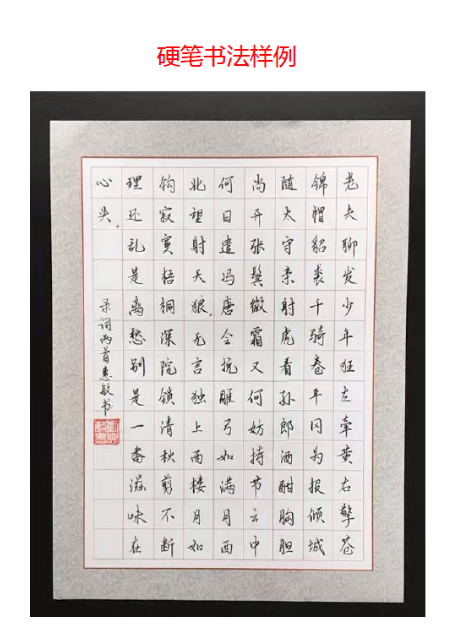 硬笔书法样例
老夫聊发少年狂左牵黄右擎苍
锦帽貂裘千骑卷平冈为报倾城
随太守亲射虎看孙郎酒酣胸胆
尚开张鬓微霜又何妨持节云中
何日遣冯唐会挽雕弓如满月西
北望射天狼。无言独上西楼月如
钩寂寞梧桐深院锁清秋剪不断
理还乱是离愁别是一番滋味在
心头。
录词两首惠敏书